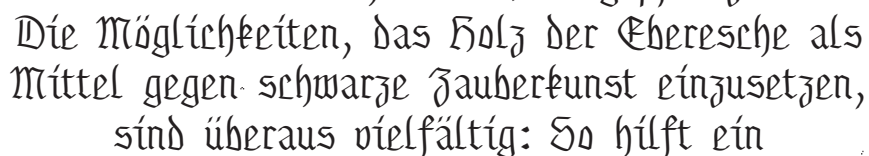 Die Möglichkeiten, das Holz der Eberesche als
Mittel gegen schwarze Zauberkunst einzusetzen,
sind überaus vielfältig: So hilft ein